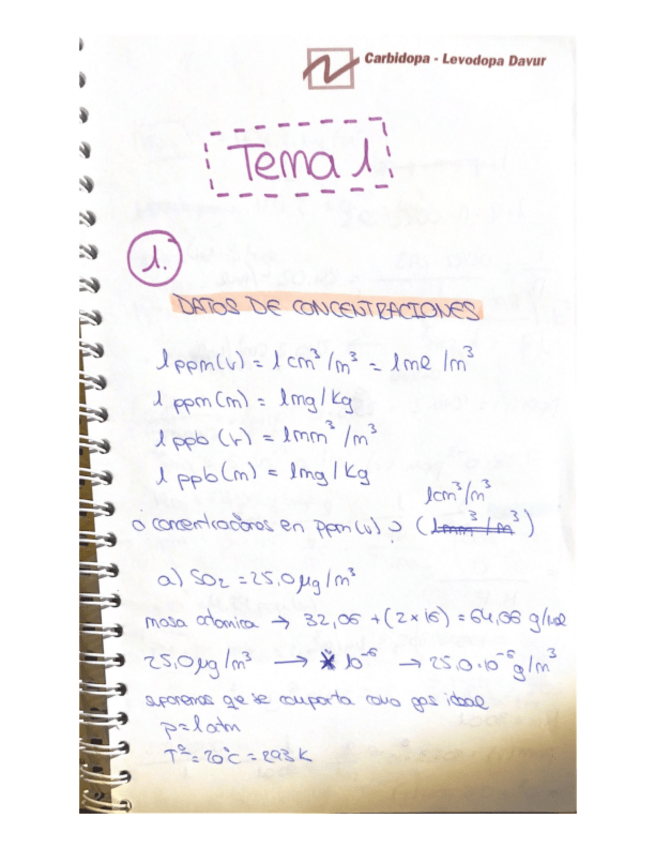 Carbidopa - Levodopa Davur
Tema 1
1.
DATOS DE CONCENTRACIONES
1 ppm(v) = 1 cm³/m³ = 1 ml/m³
1 ppm(m) = 1mg/Kg
1 ppb (v) = 1mm³/m³
1 ppb(m) = 1mg/Kg
1cm³/m³
a concentraciones en ppm(v) (1mm³/m³)
a) SO₂ = 25,0 µg/m³
masa atomica → 32,06 + (2×16) = 64,06 g/mol
25,0 µg/m³ → × 10⁻⁶ → 25,0·10⁻⁶ g/m³
suponemos qe se comporta como gas ideal
p = 1atm
Tª = 20°C = 293 K